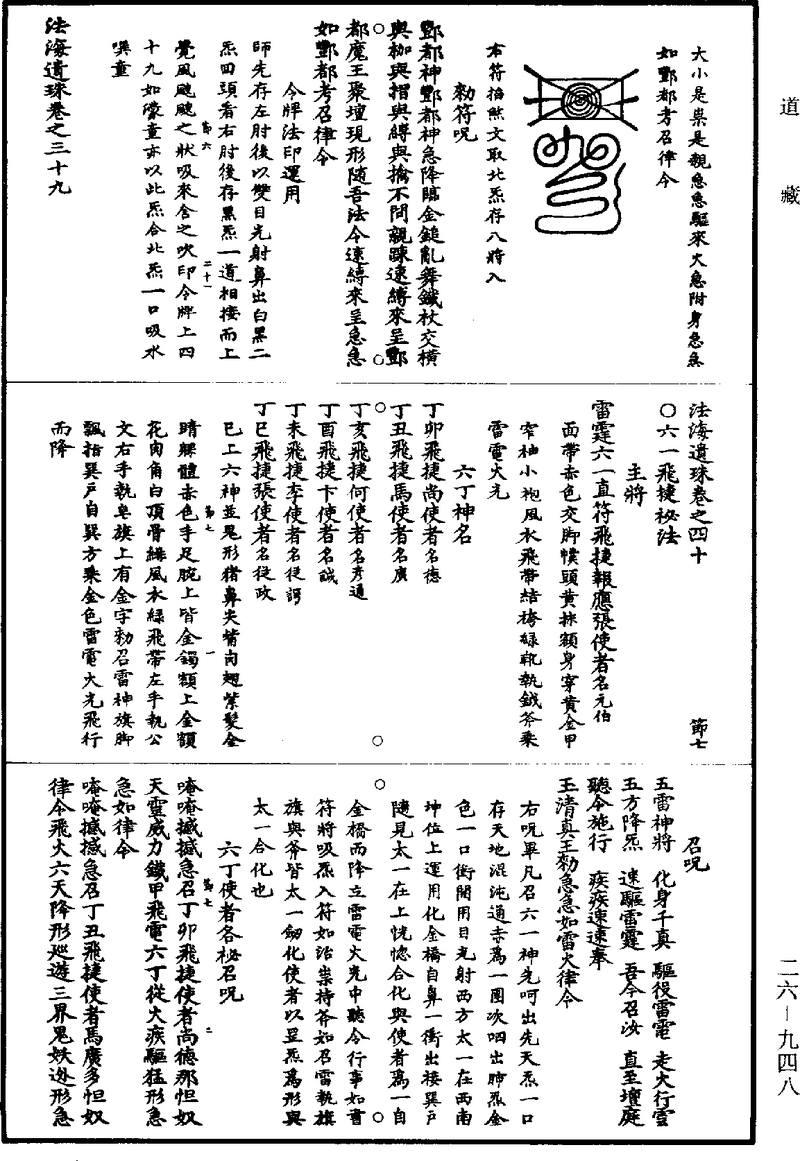 道藏
大小是祟是親急急驅來火急附身急急
如酆都考召律令
右符掐煞文取北炁存八將入
勑符呪
酆都神酆都神急降臨金鎚亂舞鐵杖交橫
與枷與掯與縛與擒不問親踈速縛來呈酆
都魔王聚壇現形隨吾法令速縛來呈急急
如酆都考召律令
令牌法印運用
師先存左肘後以雙目光射鼻出白黑二
炁回頭看右肘後存黑炁一道相接而上
覺風颼颼之狀吸來含之吹印令牌上四
十九如濛童亦以此炁合北炁一口吸水
噀童
法海遺珠卷之三十九
第六
二十一
法海遺珠卷之四十
節七
○六一飛捷祕法
主將
雷霆六一直符飛捷報應張使者名元伯
面帶赤色交脚幞頭黃抹額身穿黃金甲
窄袖小袍風衣飛帶結袴綠靴執鉞斧乘
雷電火光
六丁神名
丁卯飛捷尚使者名德
丁丑飛捷馬使者名廣
丁亥飛捷何使者名彥通
丁酉飛捷卞使者名誠
丁未飛捷李使者名從諤
丁巳飛捷張使者名從政
已上六神並鬼形猪鼻尖觜肉翅紫髮金
睛躶體赤色手足腕上皆金鐲額上金額
花肉角白頂骨綠風衣綠飛帶左手執公
文右手執皂旗上有金字勑召雷神旗脚
飄指巽戶自巽方乘金色雷電火光飛行
而降
第七
一
召呪
五雷神將 化身千真 驅役雷電 走火行雲
五方降炁 速驅雷霆 吾今召汝 直至壇庭
聽令施行 疾疾速速奉
玉清真王勑急急如雷火律令
右呪畢凡召六一神先呵出先天炁一口
存天地混沌通赤爲一團次呬出肺炁金
色一口銜開用目光射西方太一在西南
坤位上運用化金橋自鼻一衝出接巽戶
隨見太一在上恍惚合化與使者爲一自
金橋而降立雷電火光中聽令行事如書
符將吸炁入符如治祟持斧如召雷執旗
旗與斧皆太一劒化使者以呈炁爲形與
太一合化也
六丁使者各祕召呪
唵唵撼撼急召丁卯飛捷使者尚德那怛奴
天靈威力鐵甲飛電六丁從火疾驅猛形急
急如律令
唵唵撼撼急召丁丑飛捷使者馬廣多怛奴
律令飛火六天降形廵遊三界鬼妖迯形急
第七
二
二六—九四八